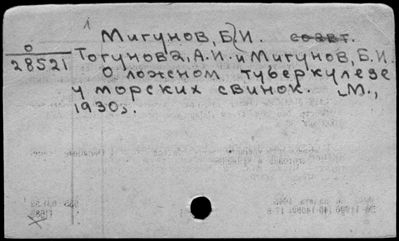 Мигунов, Б.И. соавт.
О
28521
Тогунова, А.И. и Мигунов, Б.И.
О ложном туберкулезе
у морских свинок. М.,
1930s.